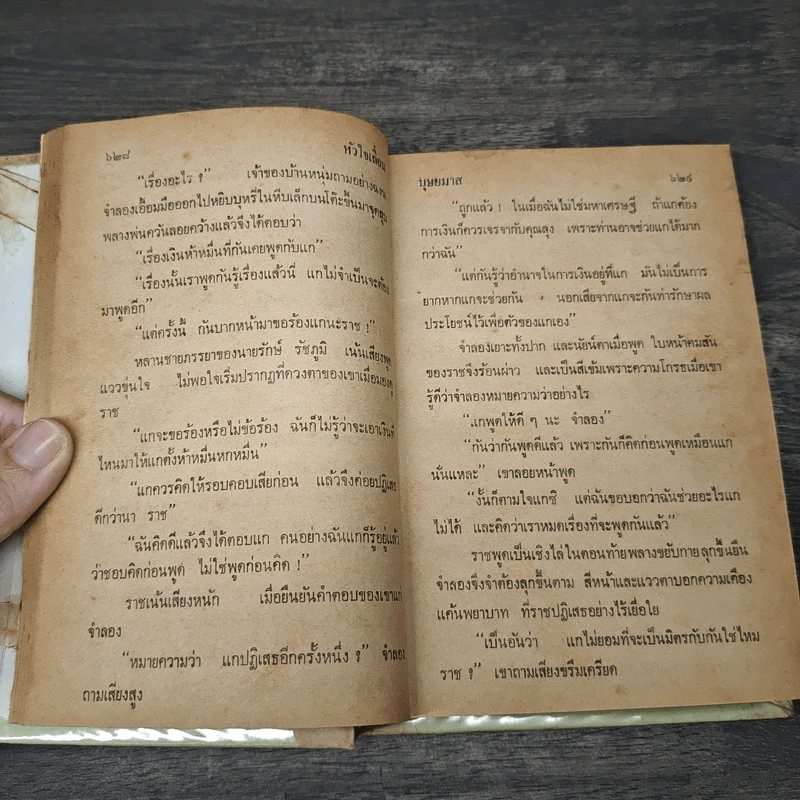 ๖๒๘
หัวใจเถื่อน
“เรื่องอะไร ?” เจ้าของบ้านหนุ่มถามอย่างฉงน
จำลองเอื้อมมือออกไปหยิบบุหรี่ในหีบเล็กบนโต๊ะขึ้นมาจุดสูบ
พลางพ่นควันลอยคว้างแล้วจึงได้ตอบว่า
“เรื่องเงินห้าหมื่นที่กันเคยพูดกับแก”
“เรื่องนั้นเราพูดกันรู้เรื่องแล้วนี่ แกไม่จำเป็นจะต้อง
มาพูดอีก”
“แต่ครั้งนี้ กันบากหน้ามาขอร้องแกนะราช !”
หลานชายภรรยาของนายรักษ์ รัชภูมิ เน้นเสียงพูด
แววขุ่นใจ ไม่พอใจเริ่มปรากฏที่ดวงตาของเขาเมื่อมองดู
ราช
“แกจะขอร้องหรือไม่ขอร้อง ฉันก็ไม่รู้ว่าจะเอาเงินที่
ไหนมาให้แกตั้งห้าหมื่นหกหมื่น”
“แกควรคิดให้รอบคอบเสียก่อน แล้วจึงค่อยปฏิเสธ
ดีกว่านา ราช”
“ฉันคิดดีแล้วจึงได้ตอบแก คนอย่างฉันแกก็รู้อยู่แล้ว
ว่าชอบคิดก่อนพูด ไม่ใช่พูดก่อนคิด !”
ราชเน้นเสียงหนัก เมื่อยืนยันคำตอบของเขาแก่
จำลอง
“หมายความว่า แกปฏิเสธอีกครั้งหนึ่ง ?” จำลอง
ถามเสียงสูง
บุษยมาส
๖๒๙
“ถูกแล้ว ! ในเมื่อฉันไม่ใช่มหาเศรษฐี ถ้าแกต้อง
การเงินก็ควรเจรจากับคุณลุง เพราะท่านอาจช่วยแกได้มาก
กว่าฉัน”
“แต่กันรู้ว่าอำนาจในการเงินอยู่ที่แก มันไม่เป็นการ
ยากหากแกจะช่วยกัน นอกเสียจากแกจะกันท่ารักษาผล
ประโยชน์ไว้เพื่อตัวของแกเอง”
จำลองเยาะทั้งปาก และนัยน์ตาเมื่อพูด ใบหน้าคมสัน
ของราชจึงร้อนผ่าว และเป็นสีเข้มเพราะความโกรธเมื่อเขา
รู้ดีว่าจำลองหมายความว่าอย่างไร
“แกพูดให้ดี ๆ นะ จำลอง”
“กันว่ากันพูดดีแล้ว เพราะกันก็คิดก่อนพูดเหมือนแก
นั่นแหละ” เขาลอยหน้าพูด
“งั้นก็ตามใจแกซิ แต่ฉันขอบอกว่าฉันช่วยอะไรแก
ไม่ได้ และคิดว่าเราหมดเรื่องที่จะพูดกันแล้ว”
ราชพูดเป็นเชิงไล่ในตอนท้ายพลางขยับกายลุกขึ้นยืน
จำลองจึงจำต้องลุกขึ้นตาม สีหน้าและแววตาบอกความเคือง
แค้นพยาบาท ที่ราชปฏิเสธอย่างไร้เยื่อใย
“เป็นอันว่า แกไม่ยอมที่จะเป็นมิตรกับกันใช่ไหม
ราช ?” เขาถามเสียงขรึมเครียด